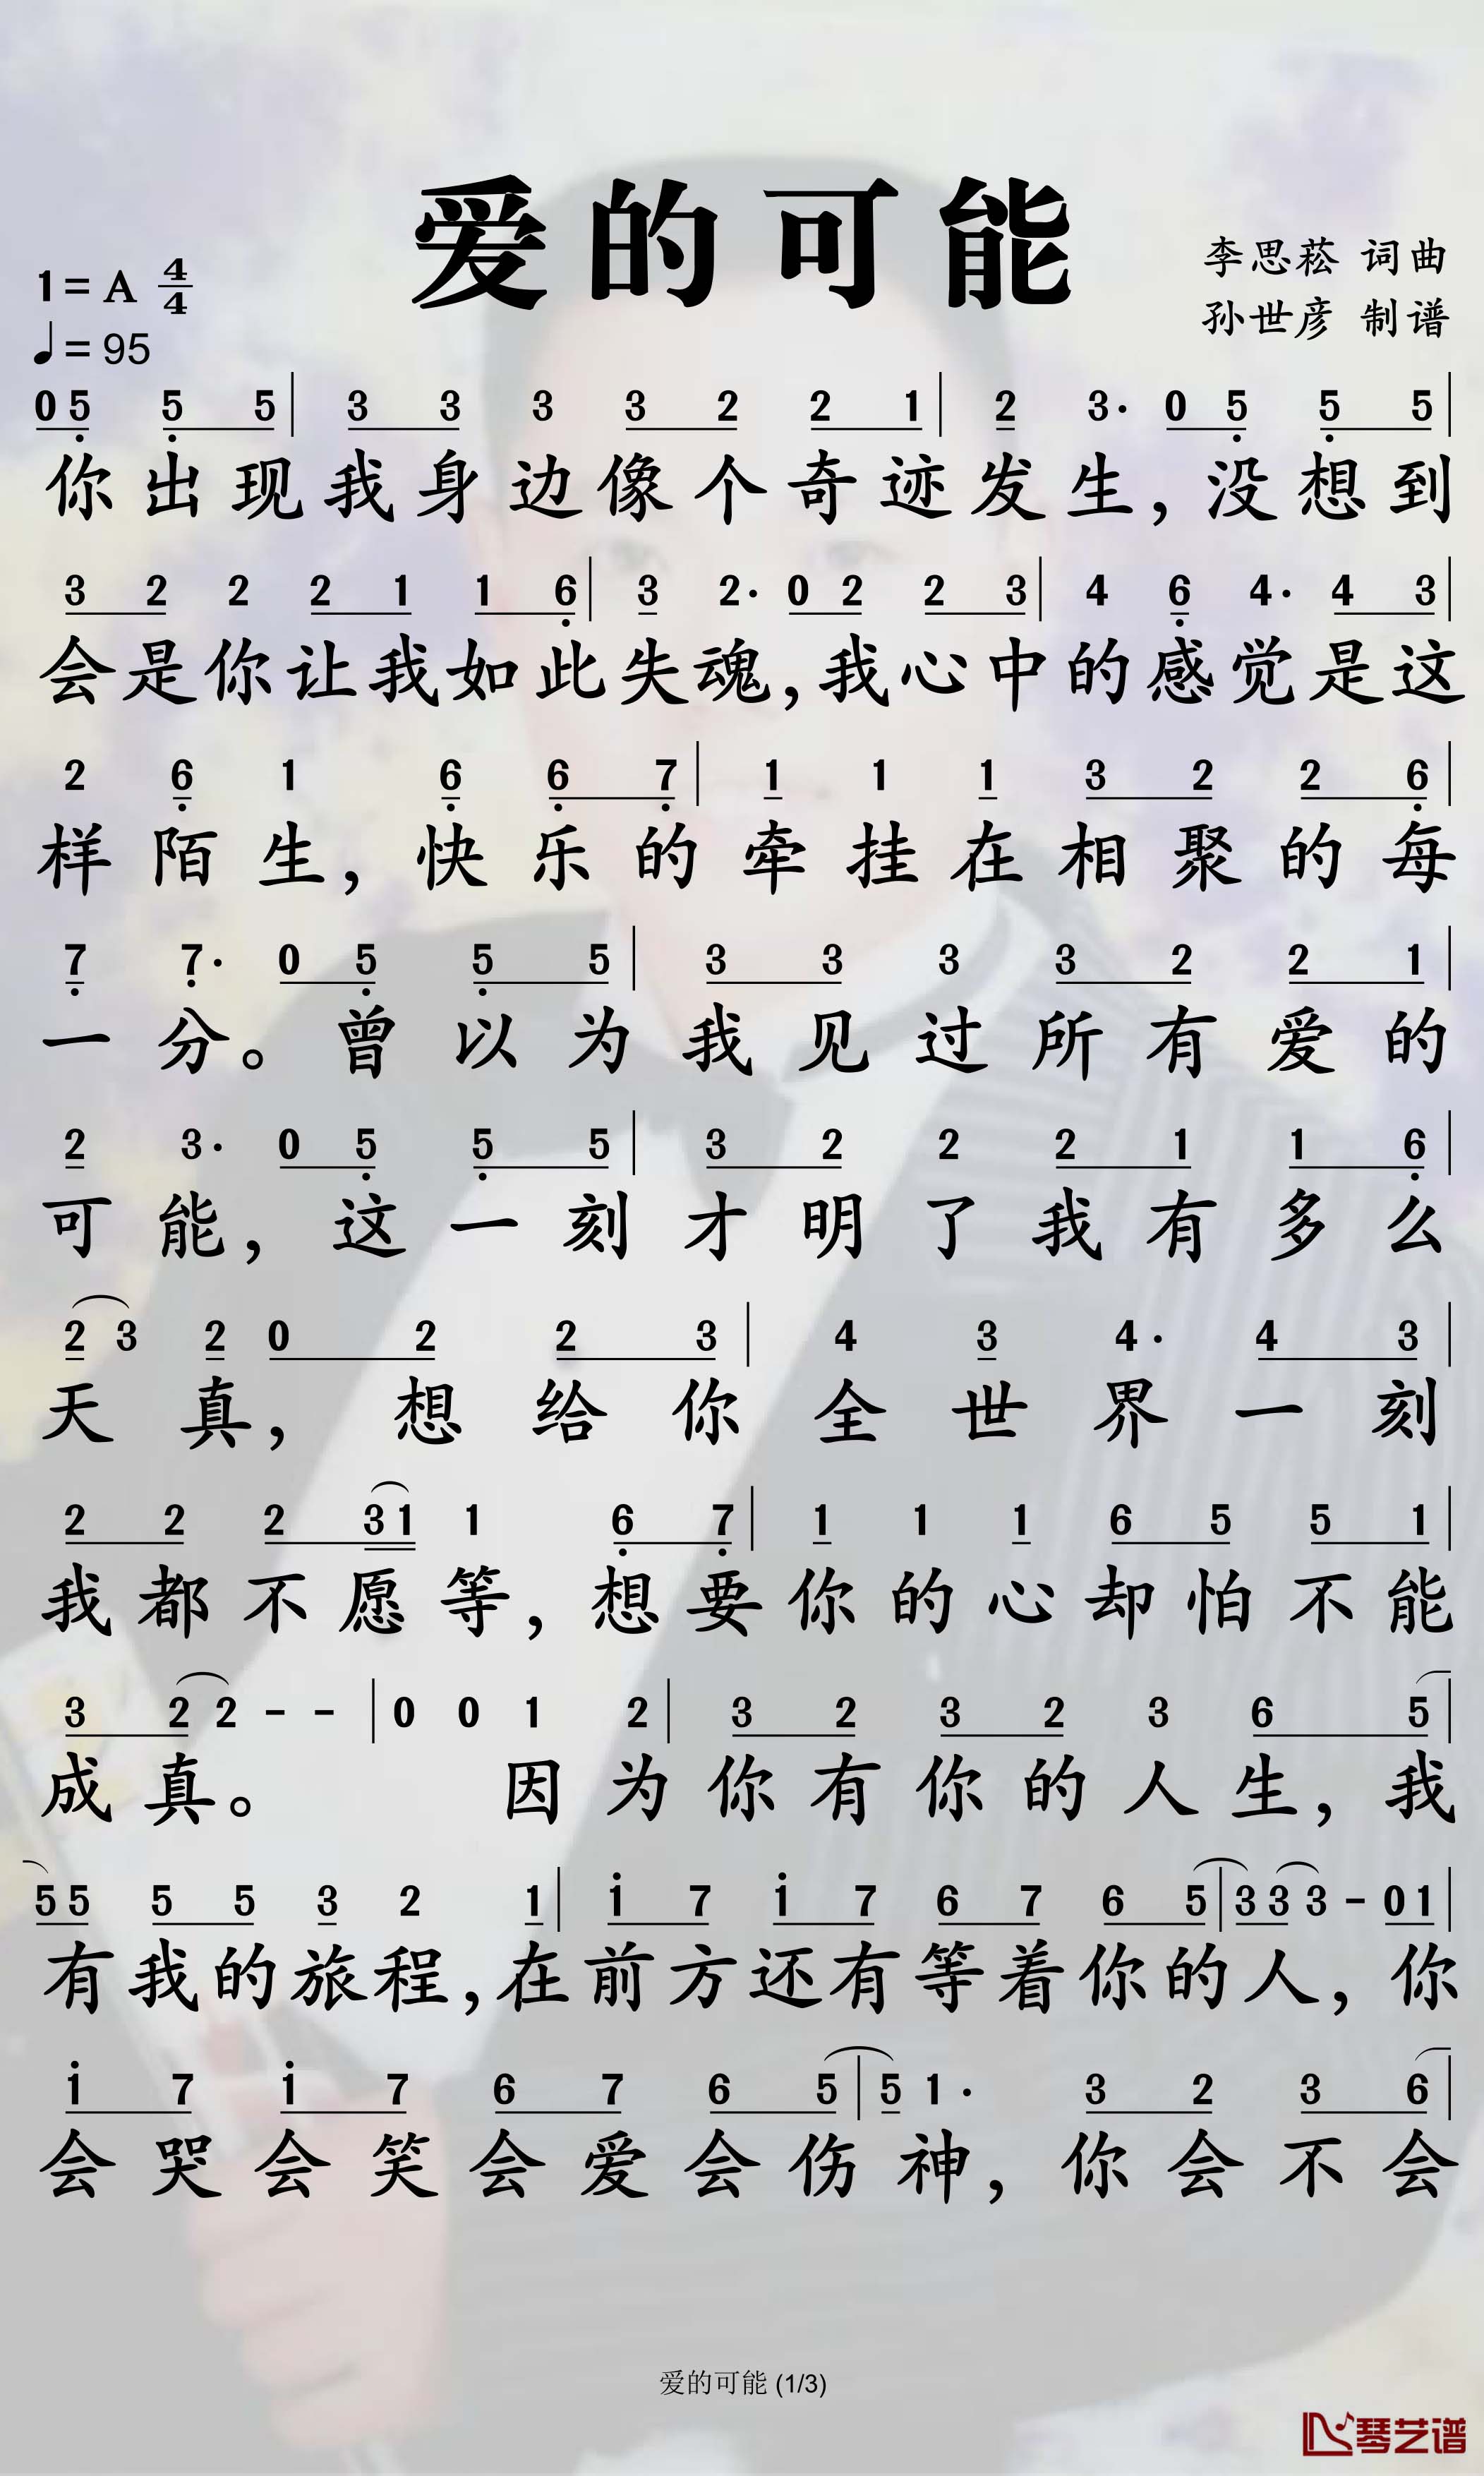 爱的可能
1=A 4/4
李思菘 词曲
♩=95
孙世彦 制谱
0 5 5 5 | 3 3 3 3 2 2 1 | 2 3· 0 5 5 5 |
你出现我身边像个奇迹发生，没想到
3 2 2 2 1 1 6 | 3 2· 0 2 2 3 | 4 6 4· 4 3 |
会是你让我如此失魂，我心中的感觉是这
2 6 1 6 6 7 | 1 1 1 3 2 2 6 |
样陌生，快乐的牵挂在相聚的每
7 7· 0 5 5 5 | 3 3 3 3 2 2 1 |
一分。曾以为我见过所有爱的
2 3· 0 5 5 5 | 3 2 2 2 1 1 6 |
可能，这一刻才明了我有多么
2 3 2 0 2 2 3 | 4 3 4· 4 3 |
天真，想给你全世界一刻
2 2 2 3 1 1 6 7 | 1 1 1 6 5 5 1 |
我都不愿等，想要你的心却怕不能
3 2 2 - - | 0 0 1 2 | 3 2 3 2 3 6 5 |
成真。因为你有你的人生，我
5 5 5 5 3 2 1 | i 7 i 7 6 7 6 5 | 3 3 3 - 0 1 |
有我的旅程，在前方还有等着你的人，你
i 7 i 7 6 7 6 5 | 5 1· 3 2 3 6 |
会哭会笑会爱会伤神，你会不会
爱的可能 (1/3)
琴艺谱